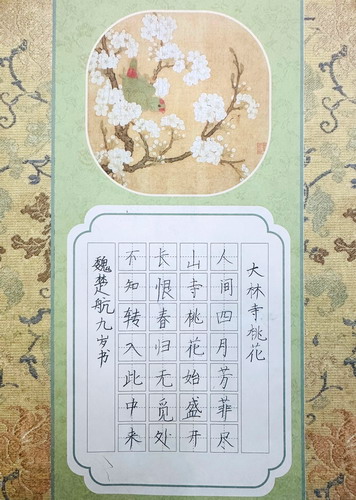 大林寺桃花
人间四月芳菲尽
山寺桃花始盛开
长恨春归无觅处
不知转入此中来
魏楚航九岁书